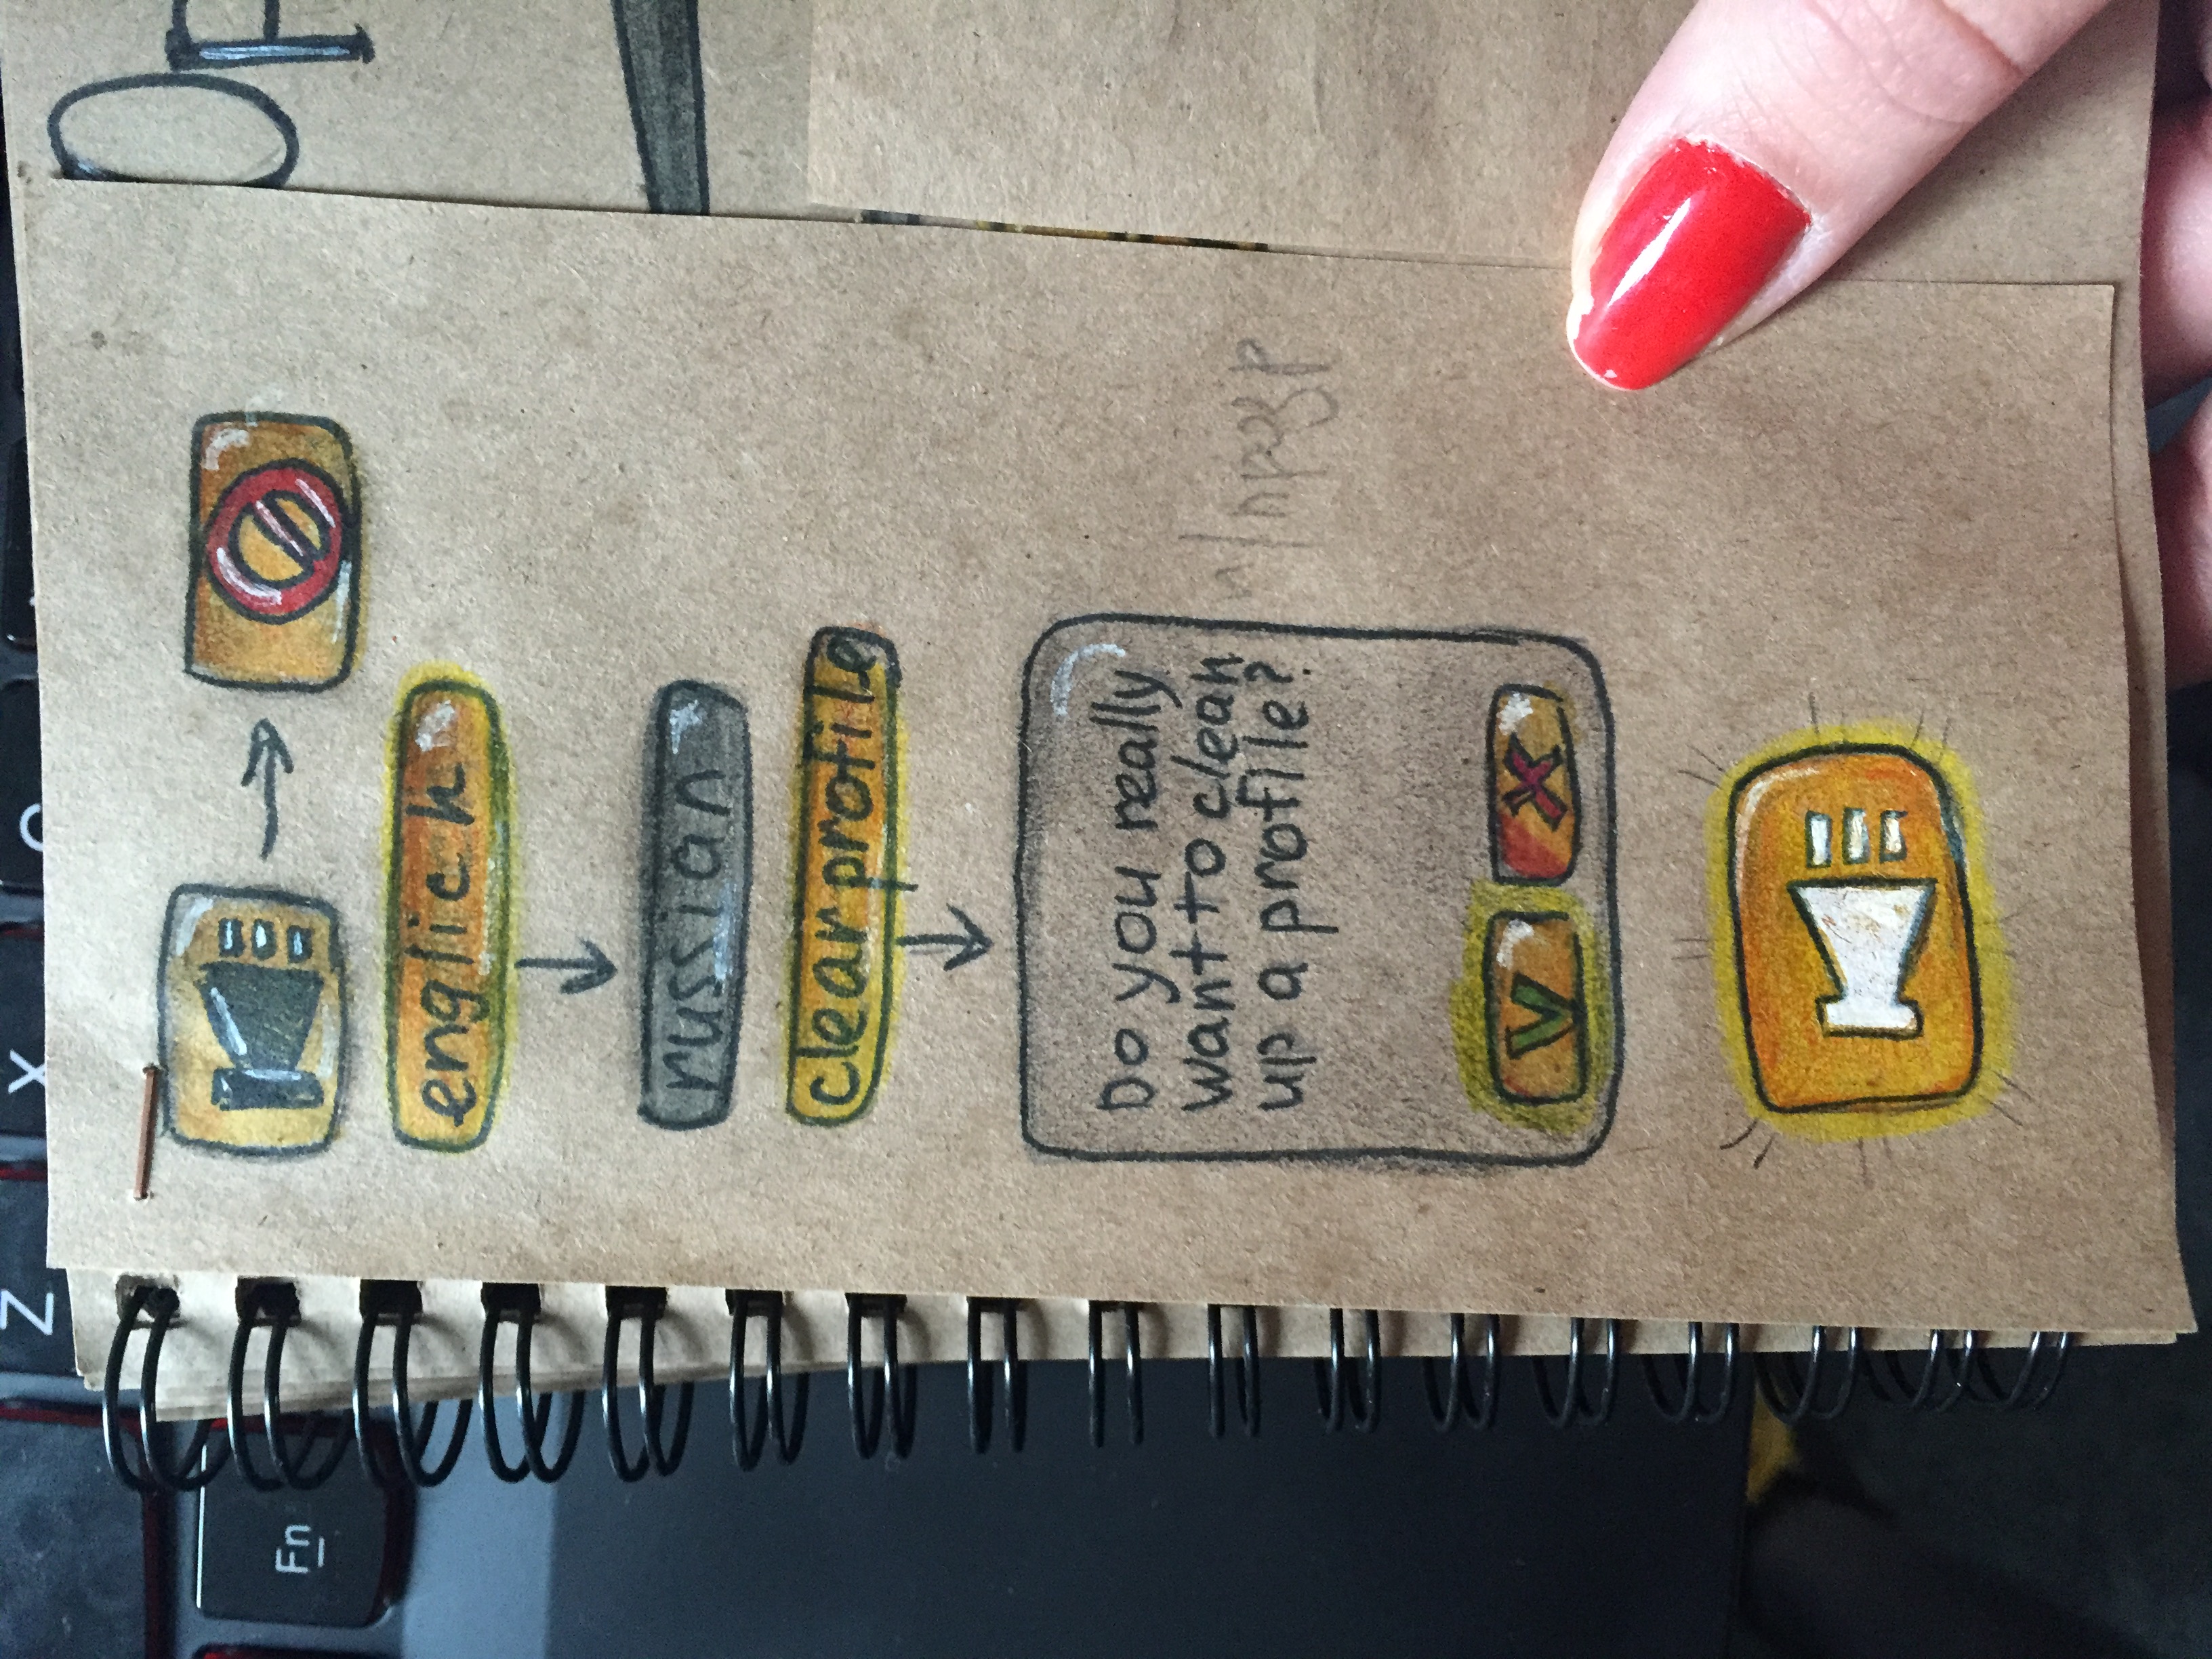 Z X
Fn
Op
englich
russian
clear profile
Do you really
want to clean
up a profile?
V X